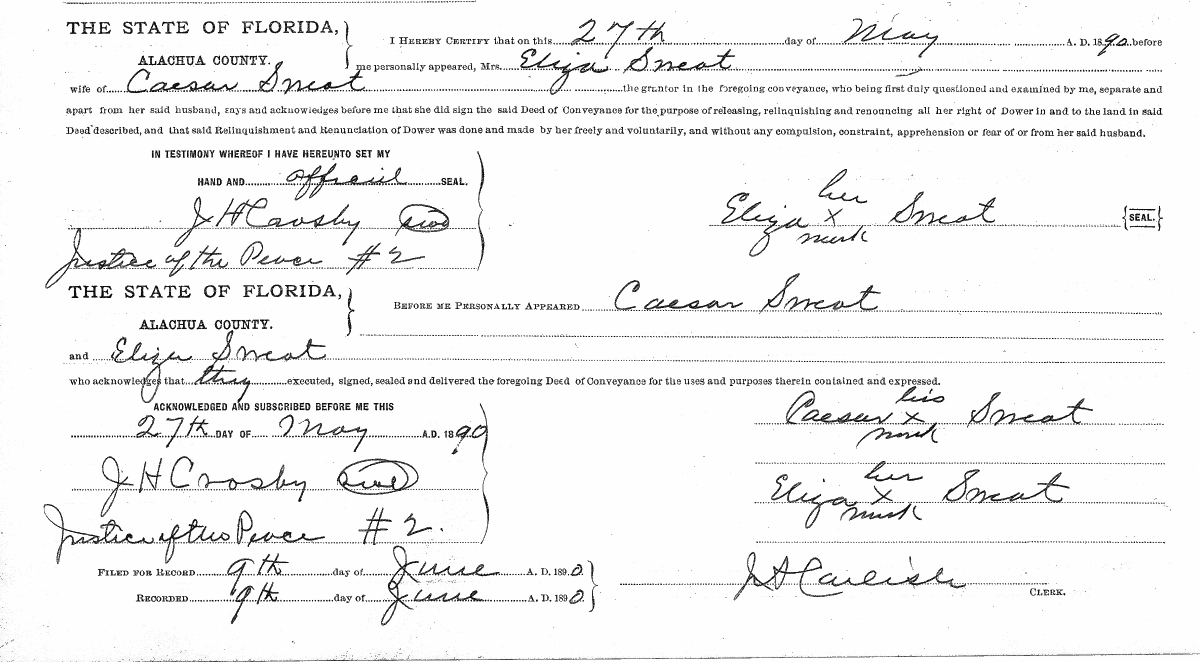 THE STATE OF FLORIDA,
ALACHUA COUNTY.
I HEREBY CERTIFY that on this 27th day of May A. D. 1890 before
me personally appeared, Mrs. Eliza Sweat
wife of Caesar Sweat the grantor in the foregoing conveyance, who being first duly questioned and examined by me, separate and
apart from her said husband, says and acknowledges before me that she did sign the said Deed of Conveyance for the purpose of releasing, relinquishing and renouncing all her right of Dower in and to the land in said
Deed described, and that said Relinquishment and Renunciation of Dower was done and made by her freely and voluntarily, and without any compulsion, constraint, apprehension or fear of or from her said husband.
IN TESTIMONY WHEREOF I HAVE HEREUNTO SET MY
HAND AND official SEAL.
J H Crosby seal
Justice of the Peace #2
her
Eliza x Sweat {SEAL.}
mark
THE STATE OF FLORIDA,
ALACHUA COUNTY.
BEFORE ME PERSONALLY APPEARED Caesar Sweat
and Eliza Sweat
who acknowledges that they executed, signed, sealed and delivered the foregoing Deed of Conveyance for the uses and purposes therein contained and expressed.
ACKNOWLEDGED AND SUBSCRIBED BEFORE ME THIS
27th DAY OF May A.D. 1890
J H Crosby seal
Justice of the Peace #2.
his
Caesar x Sweat
mark
her
Eliza x Sweat
mark
FILED FOR RECORD 9th day of June A. D. 1890.
RECORDED 9th day of June A. D. 1890.
J A Carlisle CLERK.